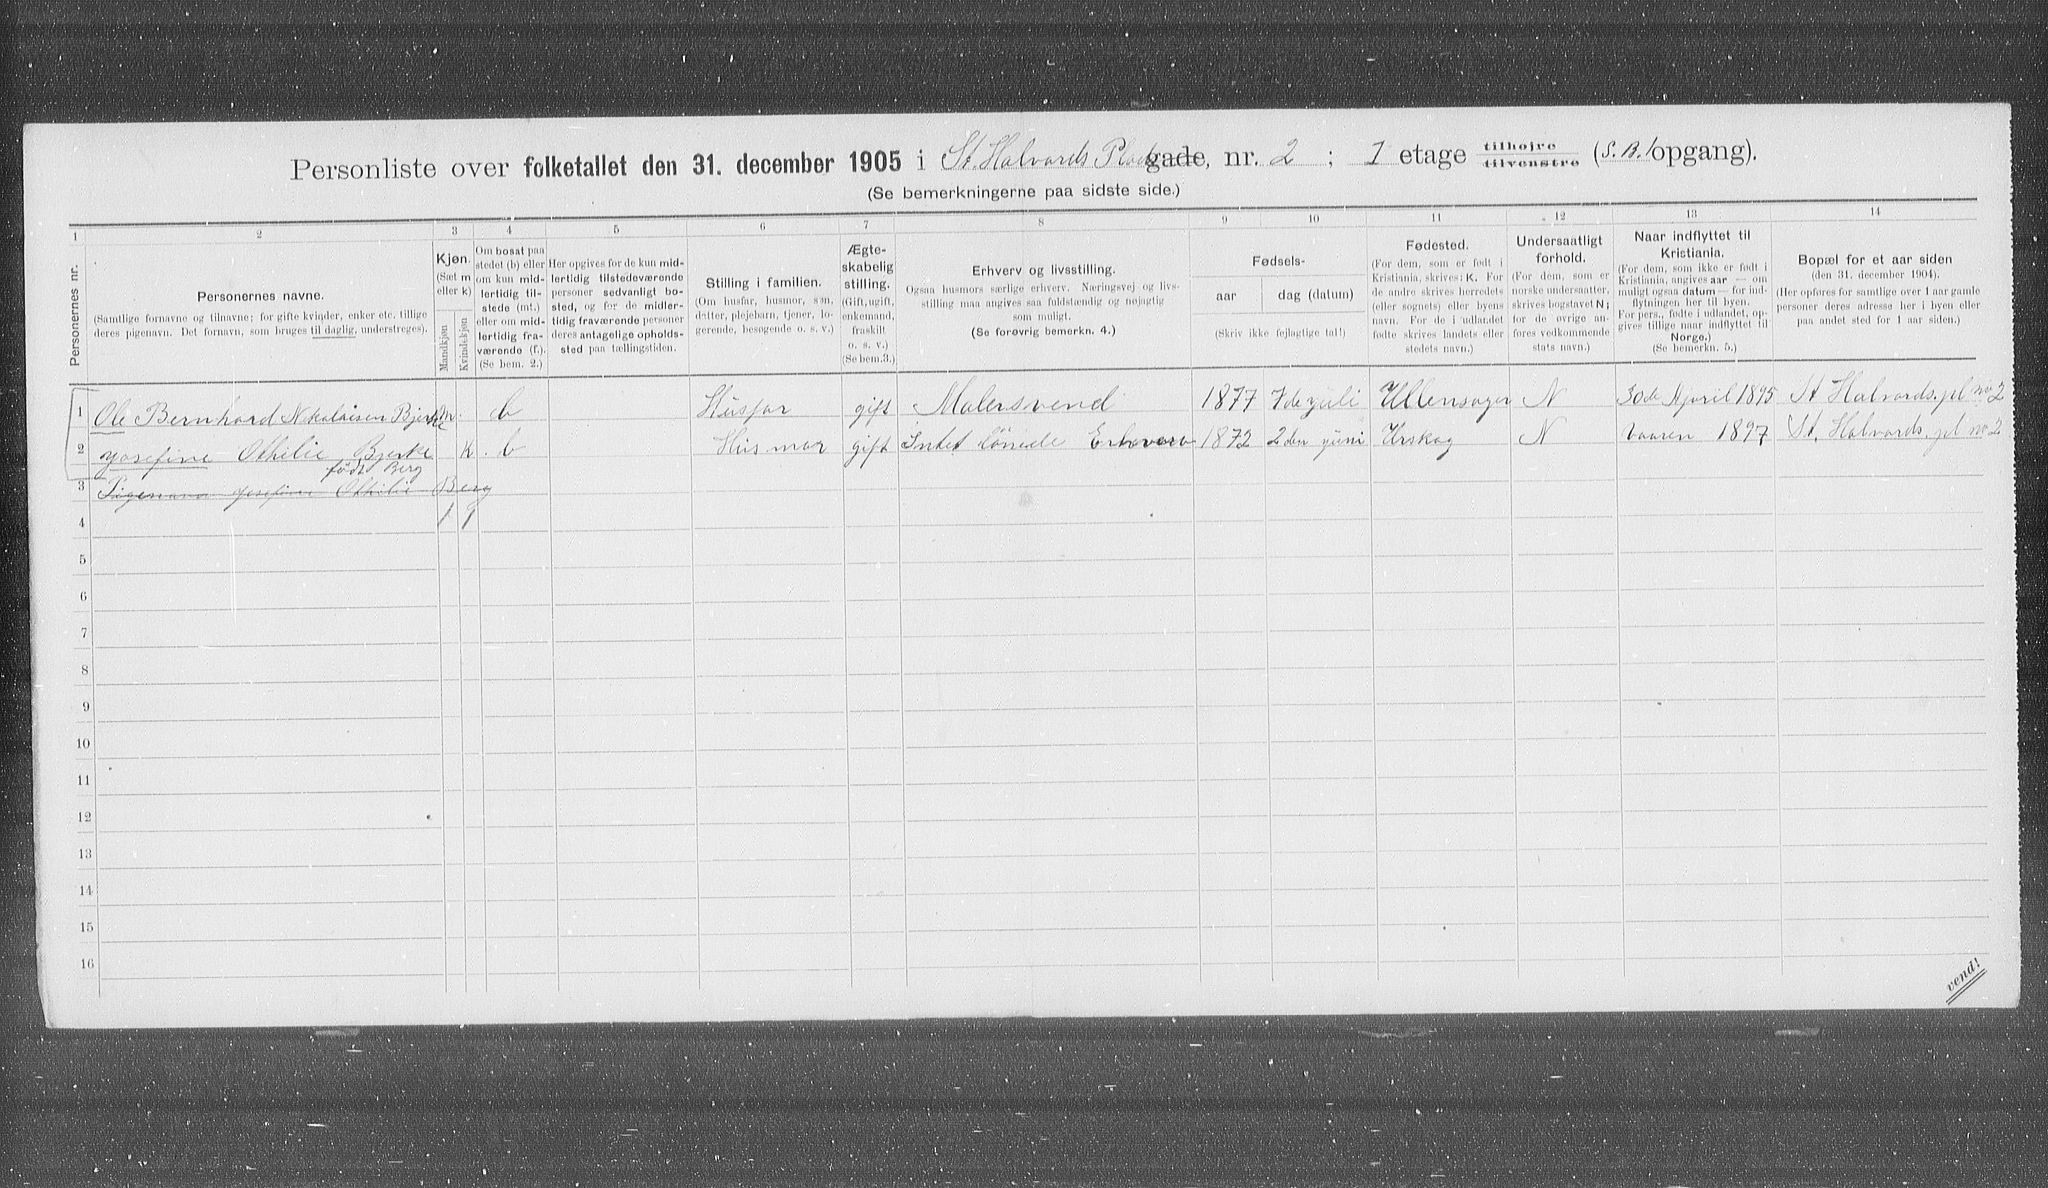 Personliste over folketallet den 31. december 1905 i St. Halvards Plads gade, nr. 2 ; 1 etage tilhøjre tilvenstre (S. B. opgang).
(Se bemerkningerne paa sidste side.)
1 2 3 4 5 6 7 8 9 10 11 12 13 14
Personernes nr.
Personernes navne.
(Samtlige fornavne og tilnavne; for gifte kvinder, enker etc. tillige
deres pigenavn. Det fornavn, som bruges til daglig, understreges).
Kjøn.
(Sæt m
eller k)
Mandkjøn
Kvindekjøn
Om bosat paa
stedet (b) eller
om kun mid-
lertidig til-
stede (mt.)
eller om mid-
lertidig fra-
værende (f.).
(Se bem. 2.)
Her opgives for de kun mid-
lertidig tilstedeværende
personer sedvanligt bo-
sted, og for de midler-
tidig fraværende personer
deres antagelige opholds-
sted paa tællingstiden.
Stilling i familien.
(Om husfar, husmor, søn,
datter, plejebarn, tjener, lo-
gerende, besøgende o. s. v.)
Ægte-
skabelig
stilling.
(Gift, ugift,
enkemand,
fraskilt
o. s. v.)
(Se bem. 3.)
Erhverv og livsstilling.
Ogsaa husmors særlige erhverv. Næringsvej og livs-
stilling maa angives saa fuldstændig og nøjagtig
som muligt.
(Se forøvrig bemerkn. 4.)
Fødsels-
aar
dag (datum)
(Skriv ikke fejlagtige tal!)
Fødested.
(For dem, som er født i
Kristiania, skrives: K. For
de andre skrives herredets
(eller sognets) eller byens
navn. For de i udlandet
fødte skrives landets eller
stedets navn.)
Undersaatligt
forhold.
(For dem, som er
norske undersaatter,
skrives bogstavet N;
for de øvrige an-
føres vedkommende
stats navn.)
Naar indflyttet til
Kristiania.
(For dem, som ikke er født i
Kristiania, angives aar — om
muligt ogsaa datum — for ind-
flytningen her til byen.
For pers., fødte i udlandet, op-
gives tillige naar indflyttet til
Norge.)
(Se bemerkn. 5.)
Bopæl for et aar siden
(den 31. december 1904).
(Her opføres for samtlige over 1 aar gamle
personer deres adresse her i byen eller
paa andet sted for 1 aar siden.)
1 Ole Bernhard Nikolaisen Bjerke m. b Husfar gift Malersvend 1877 7 de juli Ullensager N 30 de April 1895 St Halvards. pl no 2
2 Josefine Othilie Bjerke k b Husmor gift Intet lönede Erhverv 1872 2 den juni Urskog N vaaren 1897 St. Halvards. pl no 2
født Berg
3 Pigenavn Josefine Othilie Berg
4 1 1
5
6
7
8
9
10
11
12
13
14
15
16
vend!